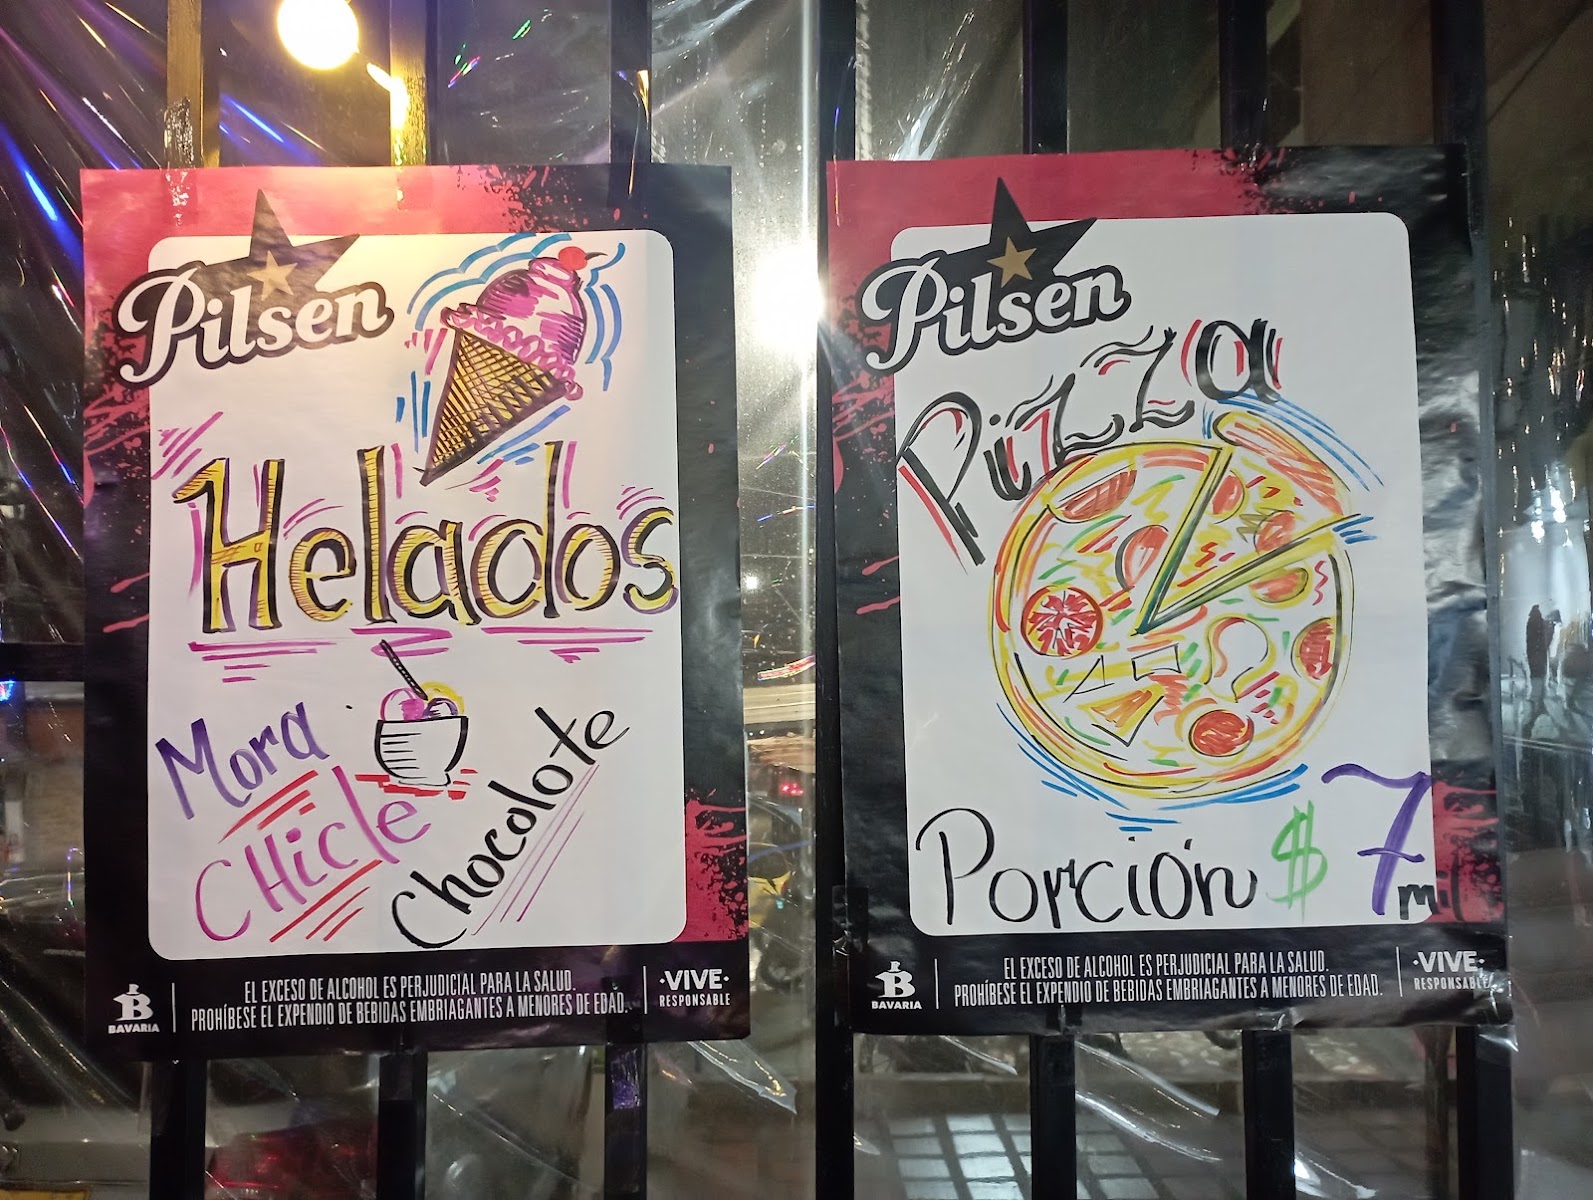 Pilsen
Helados
Mora
CHicle
Chocolote
B
BAVARIA
EL EXCESO DE ALCOHOL ES PERJUDICIAL PARA LA SALUD.
PROHÍBESE EL EXPENDIO DE BEBIDAS EMBRIAGANTES A MENORES DE EDAD.
·VIVE·
RESPONSABLE
Pilsen
Pizza
Porción $7
mil
B
BAVARIA
EL EXCESO DE ALCOHOL ES PERJUDICIAL PARA LA SALUD.
PROHÍBESE EL EXPENDIO DE BEBIDAS EMBRIAGANTES A MENORES DE EDAD.
·VIVE·
RESPONSABLE